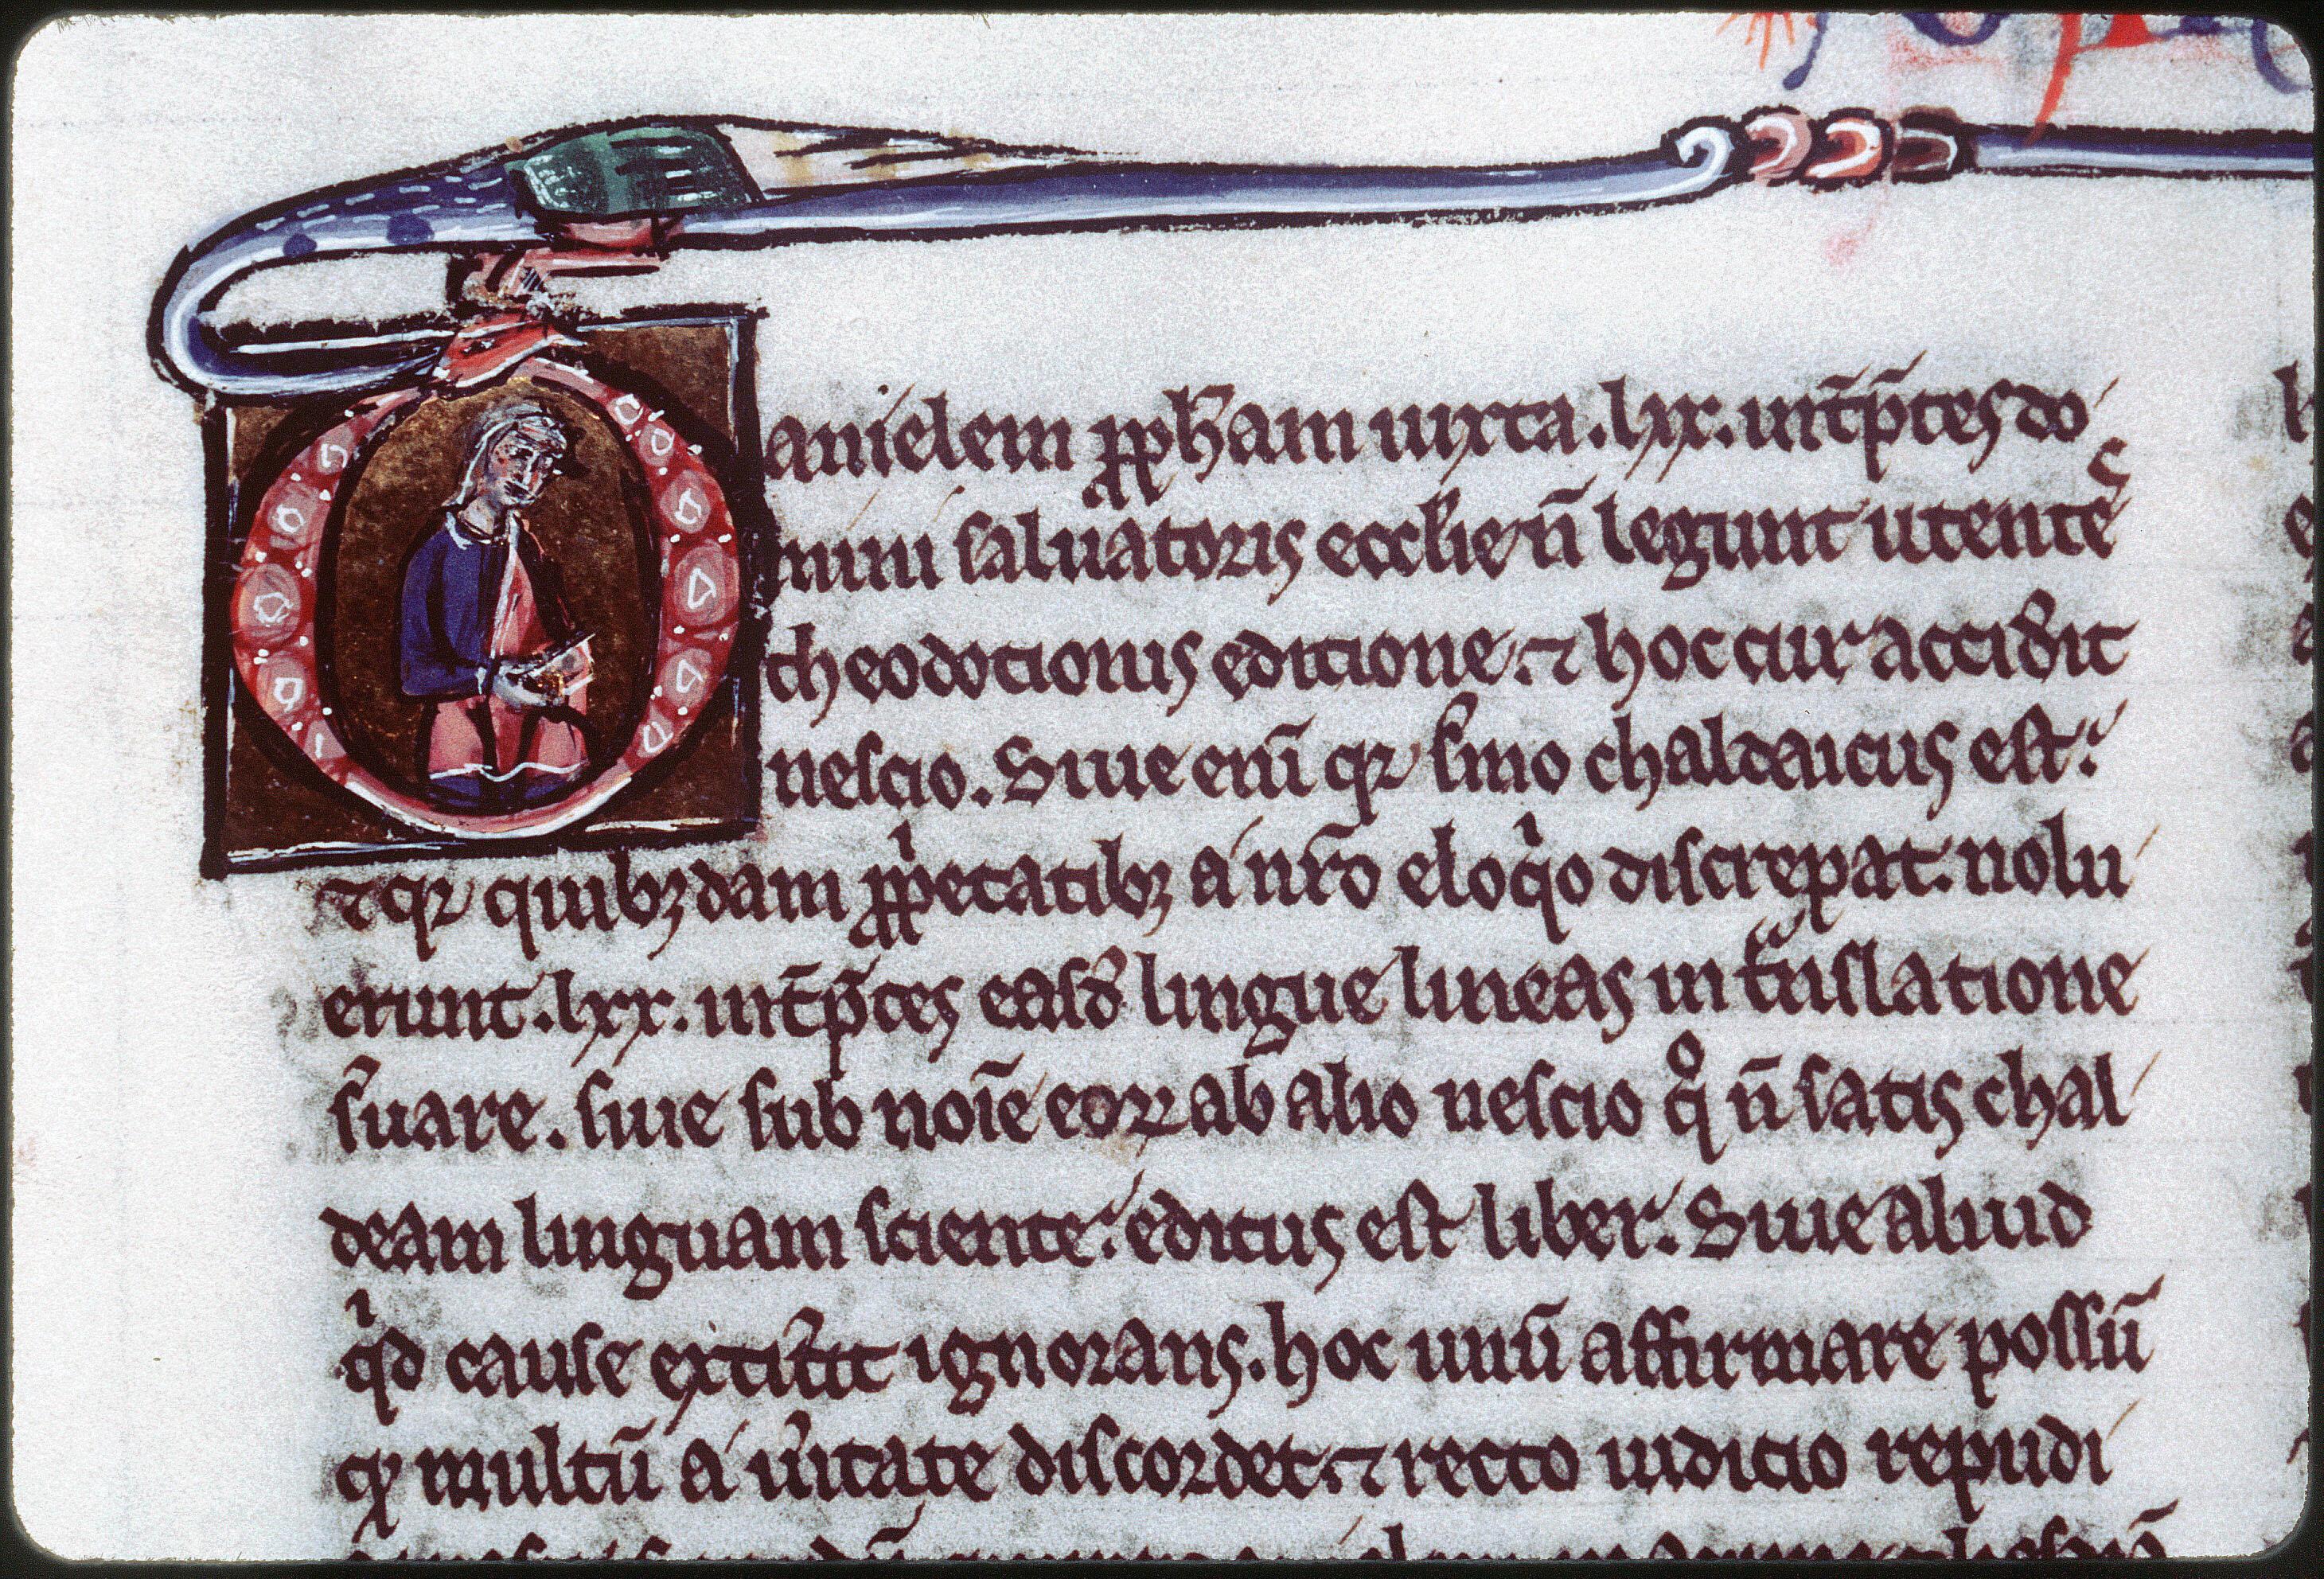 Danielem ꝓph̄am iuxta .lxx. int̄p̄tes do
mini saluatoris eccl̄ie n̄ legunt utentes
theodotionis editione. ⁊ hoc cur accid̓it
nescio. Siue eni᷑ qꝛ s̓mo chaldaicus est.
⁊ qꝛ quibꝫdam ꝓpͥetatibꝫ a nr̄o eloqͥo discrepat. nolu
erunt .lxx. int̄p̄tes easd̓ lingue lineas in t̄nslatione
s̓uare. siue sub noīe eoꝝ ab alio nescio qͦ n̄ satis chal
deam linguam sciente. editus est liber. Siue aliud
qͥd cause extit̓it ignorans. hoc unū affirmare possū
qꝫ multū a u̓itate discordet. ⁊ recto iudicio repudi